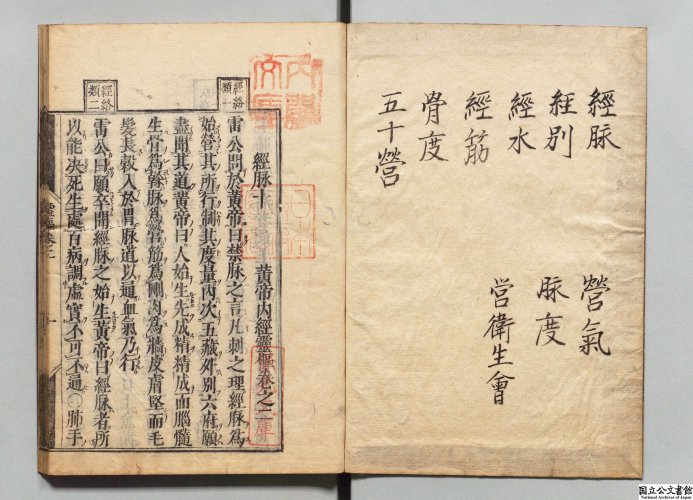 經脉
經別
經水
經筋
骨度
五十營
營氣
脉度
営衛生會
黄帝内經靈樞卷之二
經脉十
經絡類一
雷公問於黄帝曰禁脉之言凢刺之理經脉爲
始營其所行制其度量内次五藏外別六府願
盡聞其道黄帝曰人始生先成精精成而腦髓
生骨爲幹脉爲營筋爲剛肉爲牆皮膚堅而毛
髮長榖入於胃脉道以通血氣乃行
經絡類二
雷公曰願卒聞經脉之始生黄帝曰經脉者所
以能决死生處百病調虚實不可不通〇肺手
国立公文書館
National Archives of Japan